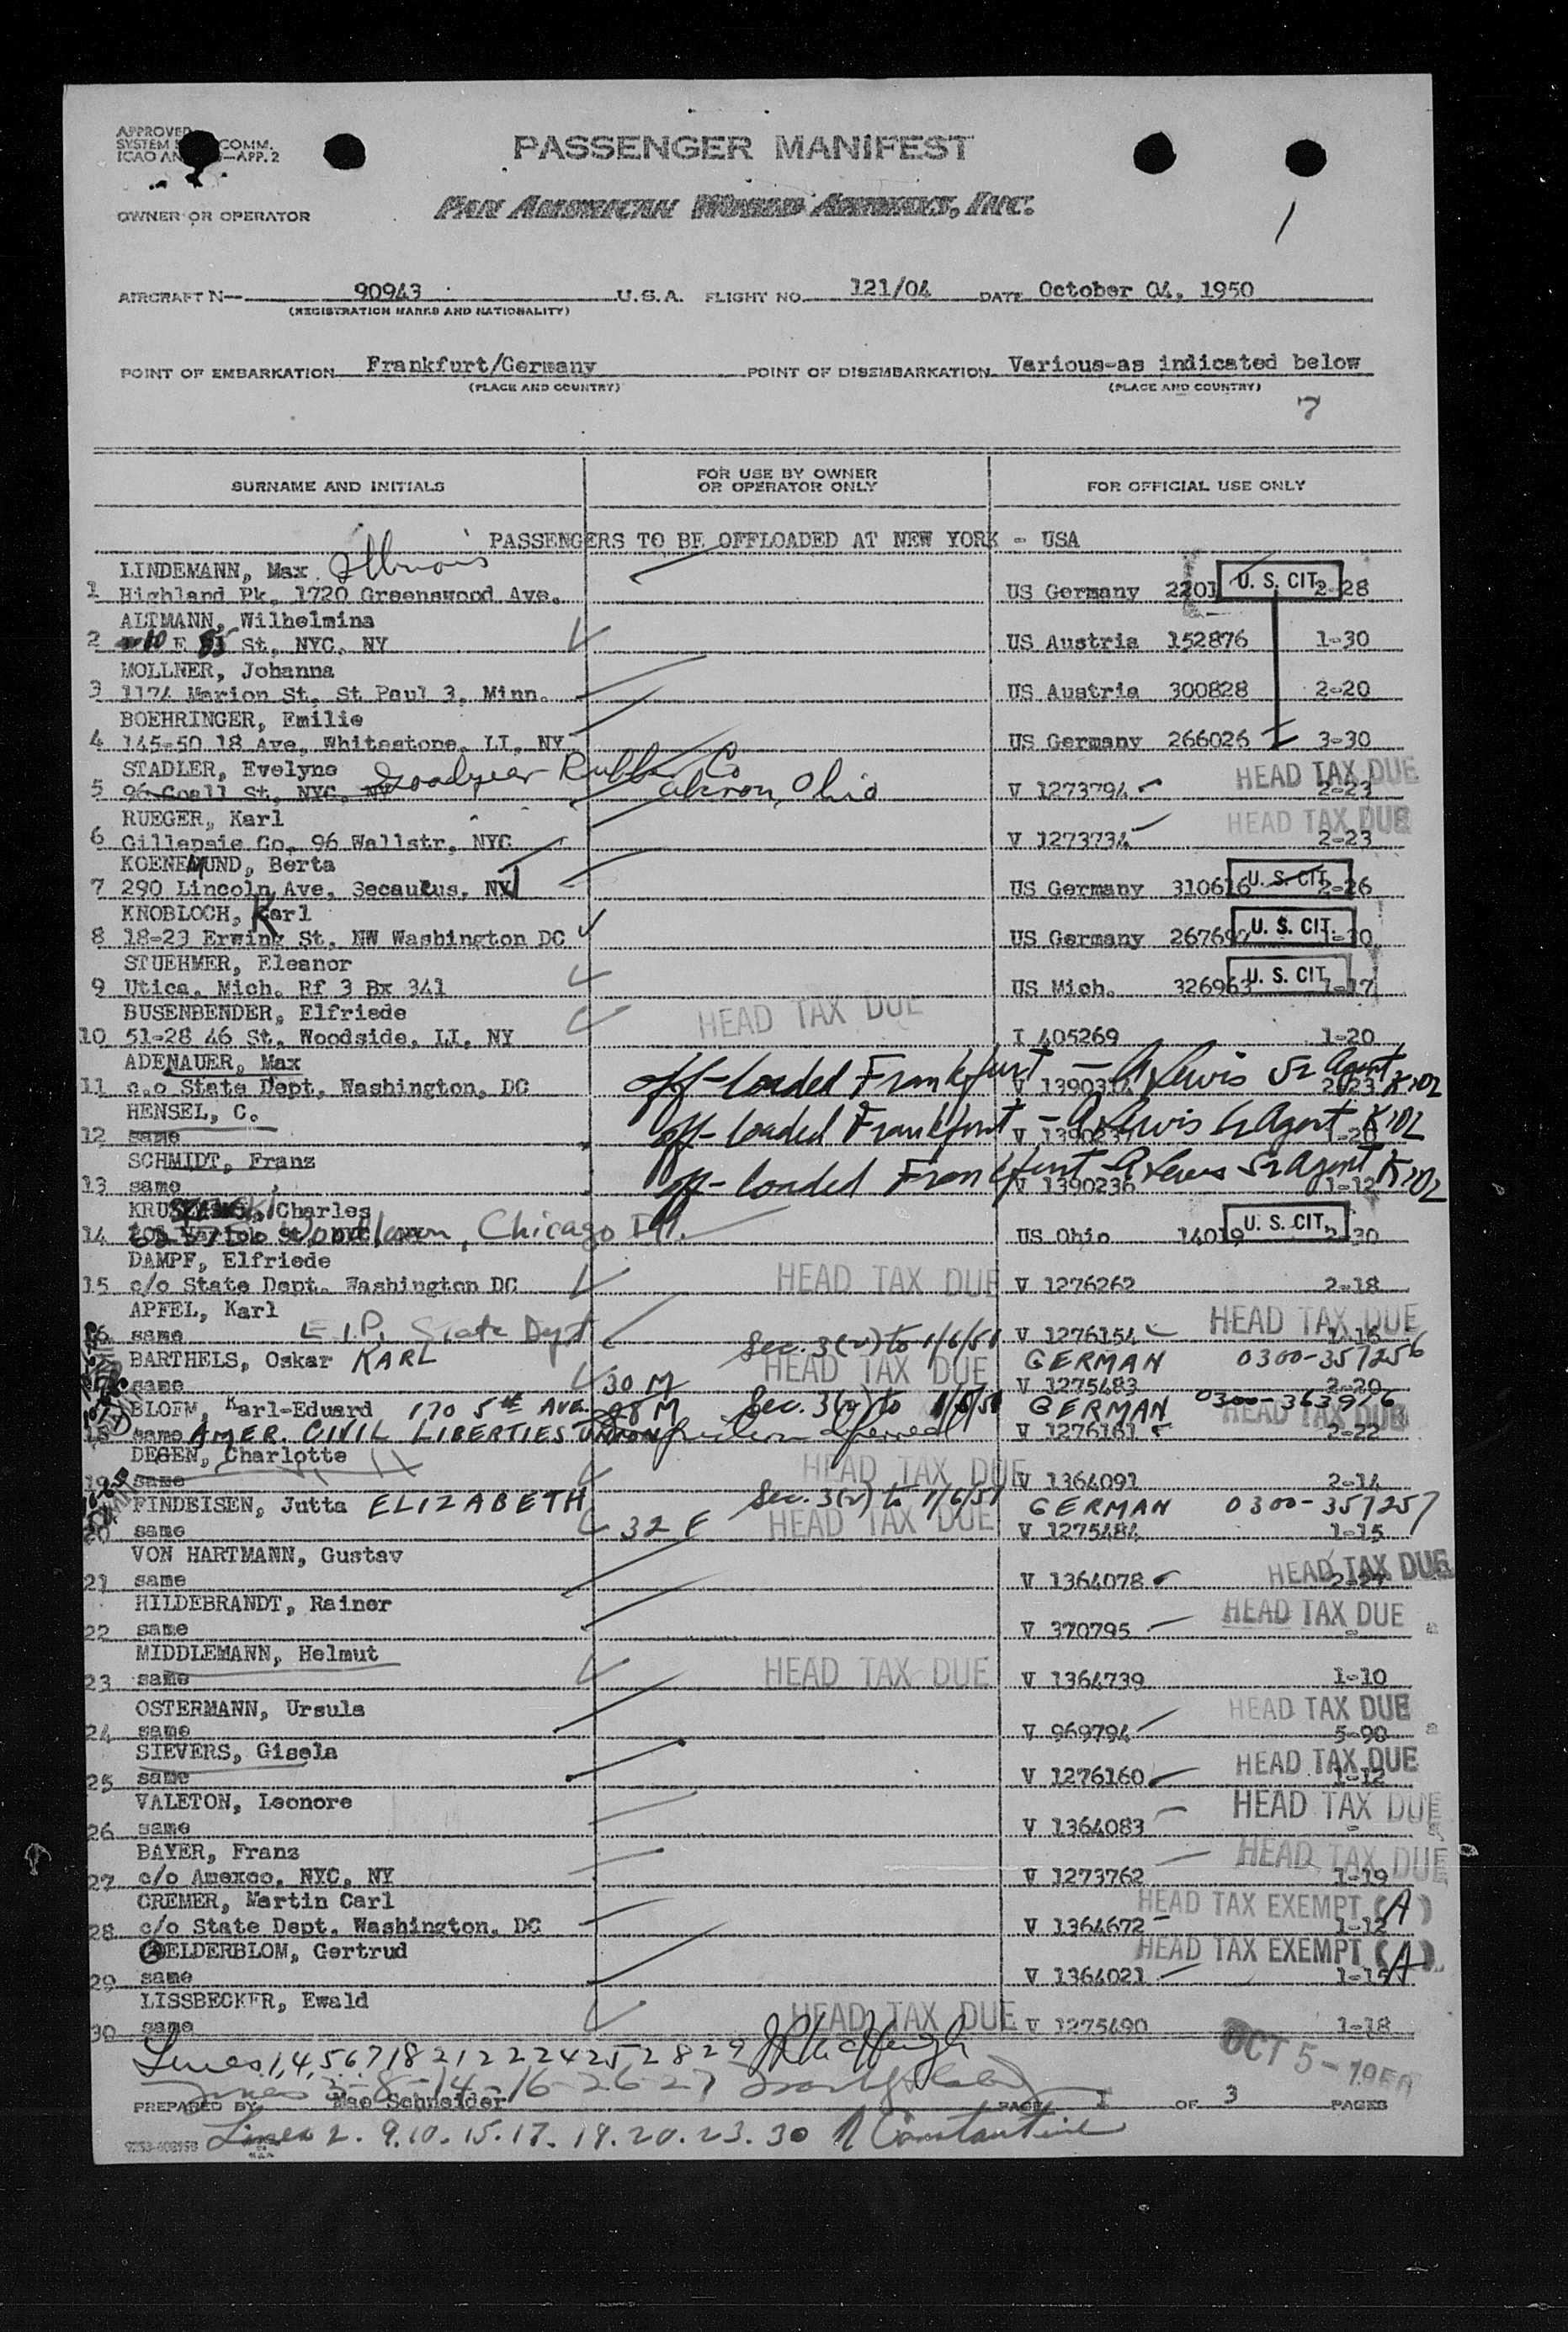 APPROVED
SYSTEM COMM.
ICAO AN —APP. 2
PASSENGER MANIFEST
OWNER OR OPERATOR
PAN AMERICAN WORLD AIRWAYS, INC.
/
AIRCRAFT N— 90943 U.S.A. FLIGHT NO. 121/04 DATE October 04, 1950
(REGISTRATION MARKS AND NATIONALITY)
POINT OF EMBARKATION Frankfurt/Germany POINT OF DISEMBARKATION Various-as indicated below
(PLACE AND COUNTRY) (PLACE AND COUNTRY)
7
SURNAME AND INITIALS FOR USE BY OWNER OR OPERATOR ONLY FOR OFFICIAL USE ONLY
PASSENGERS TO BE OFFLOADED AT NEW YORK - USA
LINDEMANN, Max Illinois
1 Highland Pk, 1720 Greenswood Ave. US Germany 2201 U. S. CIT. 2-28
ALTMANN, Wilhelmina
2 10 E 85 St, NYC, NY US Austria 152876 1-30
MOLLNER, Johanna
3 1174 Marion St, St Paul 3, Minn. US Austria 300828 2-20
BOEHRINGER, Emilie
4 145-50 18 Ave, Whitestone, LI, NY US Germany 266026 3-30
STADLER, Evelyne Goodyear Rubber Co HEAD TAX DUE
5 96 Coall St, NYC, NY Akron, Ohio V 1273794 2-23
RUEGER, Karl HEAD TAX DUE
6 Gillepsie Co, 96 Wallstr, NYC V 1273734 2-23
KOENEMUND, Berta
7 290 Lincoln Ave, Secaucus, NJ US Germany 310616 U. S. CIT. 2-26
KNOBLOCH, Karl
8 18-23 Erwing St, NW Washington DC US Germany 267697 U. S. CIT. 1-30
STUEHMER, Eleanor
9 Utica, Mich. Rf 3 Bx 341 US Mich. 326963 U. S. CIT. 1-17
BUSENBENDER, Elfriede HEAD TAX DUE
10 51-28 46 St, Woodside, LI, NY I 405269 1-20
ADENAUER, Max
11 c.o State Dept, Washington, DC off-loaded Frankfurt — A Lewis Sr Agent V 139031 2-23
HENSEL, C.
12 same off-loaded Frankfurt — A Lewis Sr Agent V 139023
SCHMIDT, Franz
13 same off-loaded Frankfurt — A Lewis Sr Agent V 1390236 1-12
KRU Charles
14 Woodlawn, Chicago Ill. US Ohio 14019 U. S. CIT. 2-30
DAMPF, Elfriede
15 c/o State Dept. Washington DC HEAD TAX DUE V 1276262 2-18
APFEL, Karl HEAD TAX DUE
16 same E.I.P. State Dept Sec. 3(2) to 1/6/51 V 1276154 1-16
BARTHELS, Oskar KARL HEAD TAX DUE GERMAN 0300-357256
same 30 M V 1275483 2-20
BLOEM, Karl-Eduard 170 5th AVE 28 M Sec. 3(2) to 1/6/51 GERMAN 0300-363976 HEAD TAX DUE
18 same AMER. CIVIL LIBERTIES UNION deferred V 1276161 2-22
DEGEN, Charlotte HEAD TAX DUE
19 same V 1364091 2-14
FINDEISEN, Jutta ELIZABETH Sec. 3(2) to 1/6/51 GERMAN 0300-357257
20 same 32 F HEAD TAX DUE V 1275484 1-15
VON HARTMANN, Gustav
21 same V 1364078 HEAD TAX DUE 2-27
HILDEBRANDT, Rainer HEAD TAX DUE
22 same V 370795 -
MIDDLEMANN, Helmut
23 same HEAD TAX DUE V 1364739 1-10
OSTERMANN, Ursula HEAD TAX DUE
24 same V 969794 5-90
SIEVERS, Gisela HEAD TAX DUE
25 same V 1276160 1-12
VALETON, Leonore HEAD TAX DUE
26 same V 1364083 -
BAYER, Franz HEAD TAX DUE
27 c/o Amexco, NYC, NY V 1273762 1-19
CREMER, Martin Carl HEAD TAX EXEMPT (A)
28 c/o State Dept. Washington, DC V 1364672 1-12
GELDERBLOM, Gertrud HEAD TAX EXEMPT (A)
29 same V 1364021 1-15
LISSBECKER, Ewald
30 same HEAD TAX DUE V 1275490 1-18
Lines 1, 4, 5 6 7 18 21 22 24 25 28 29
OCT 5 - 1950
Lines 3-8-14-16-26-27
PREPARED BY Mae Schneider PAGE 1 OF 3 PAGES
Lines 2. 9. 10. 15. 17. 19. 20. 23. 30 N Constantine